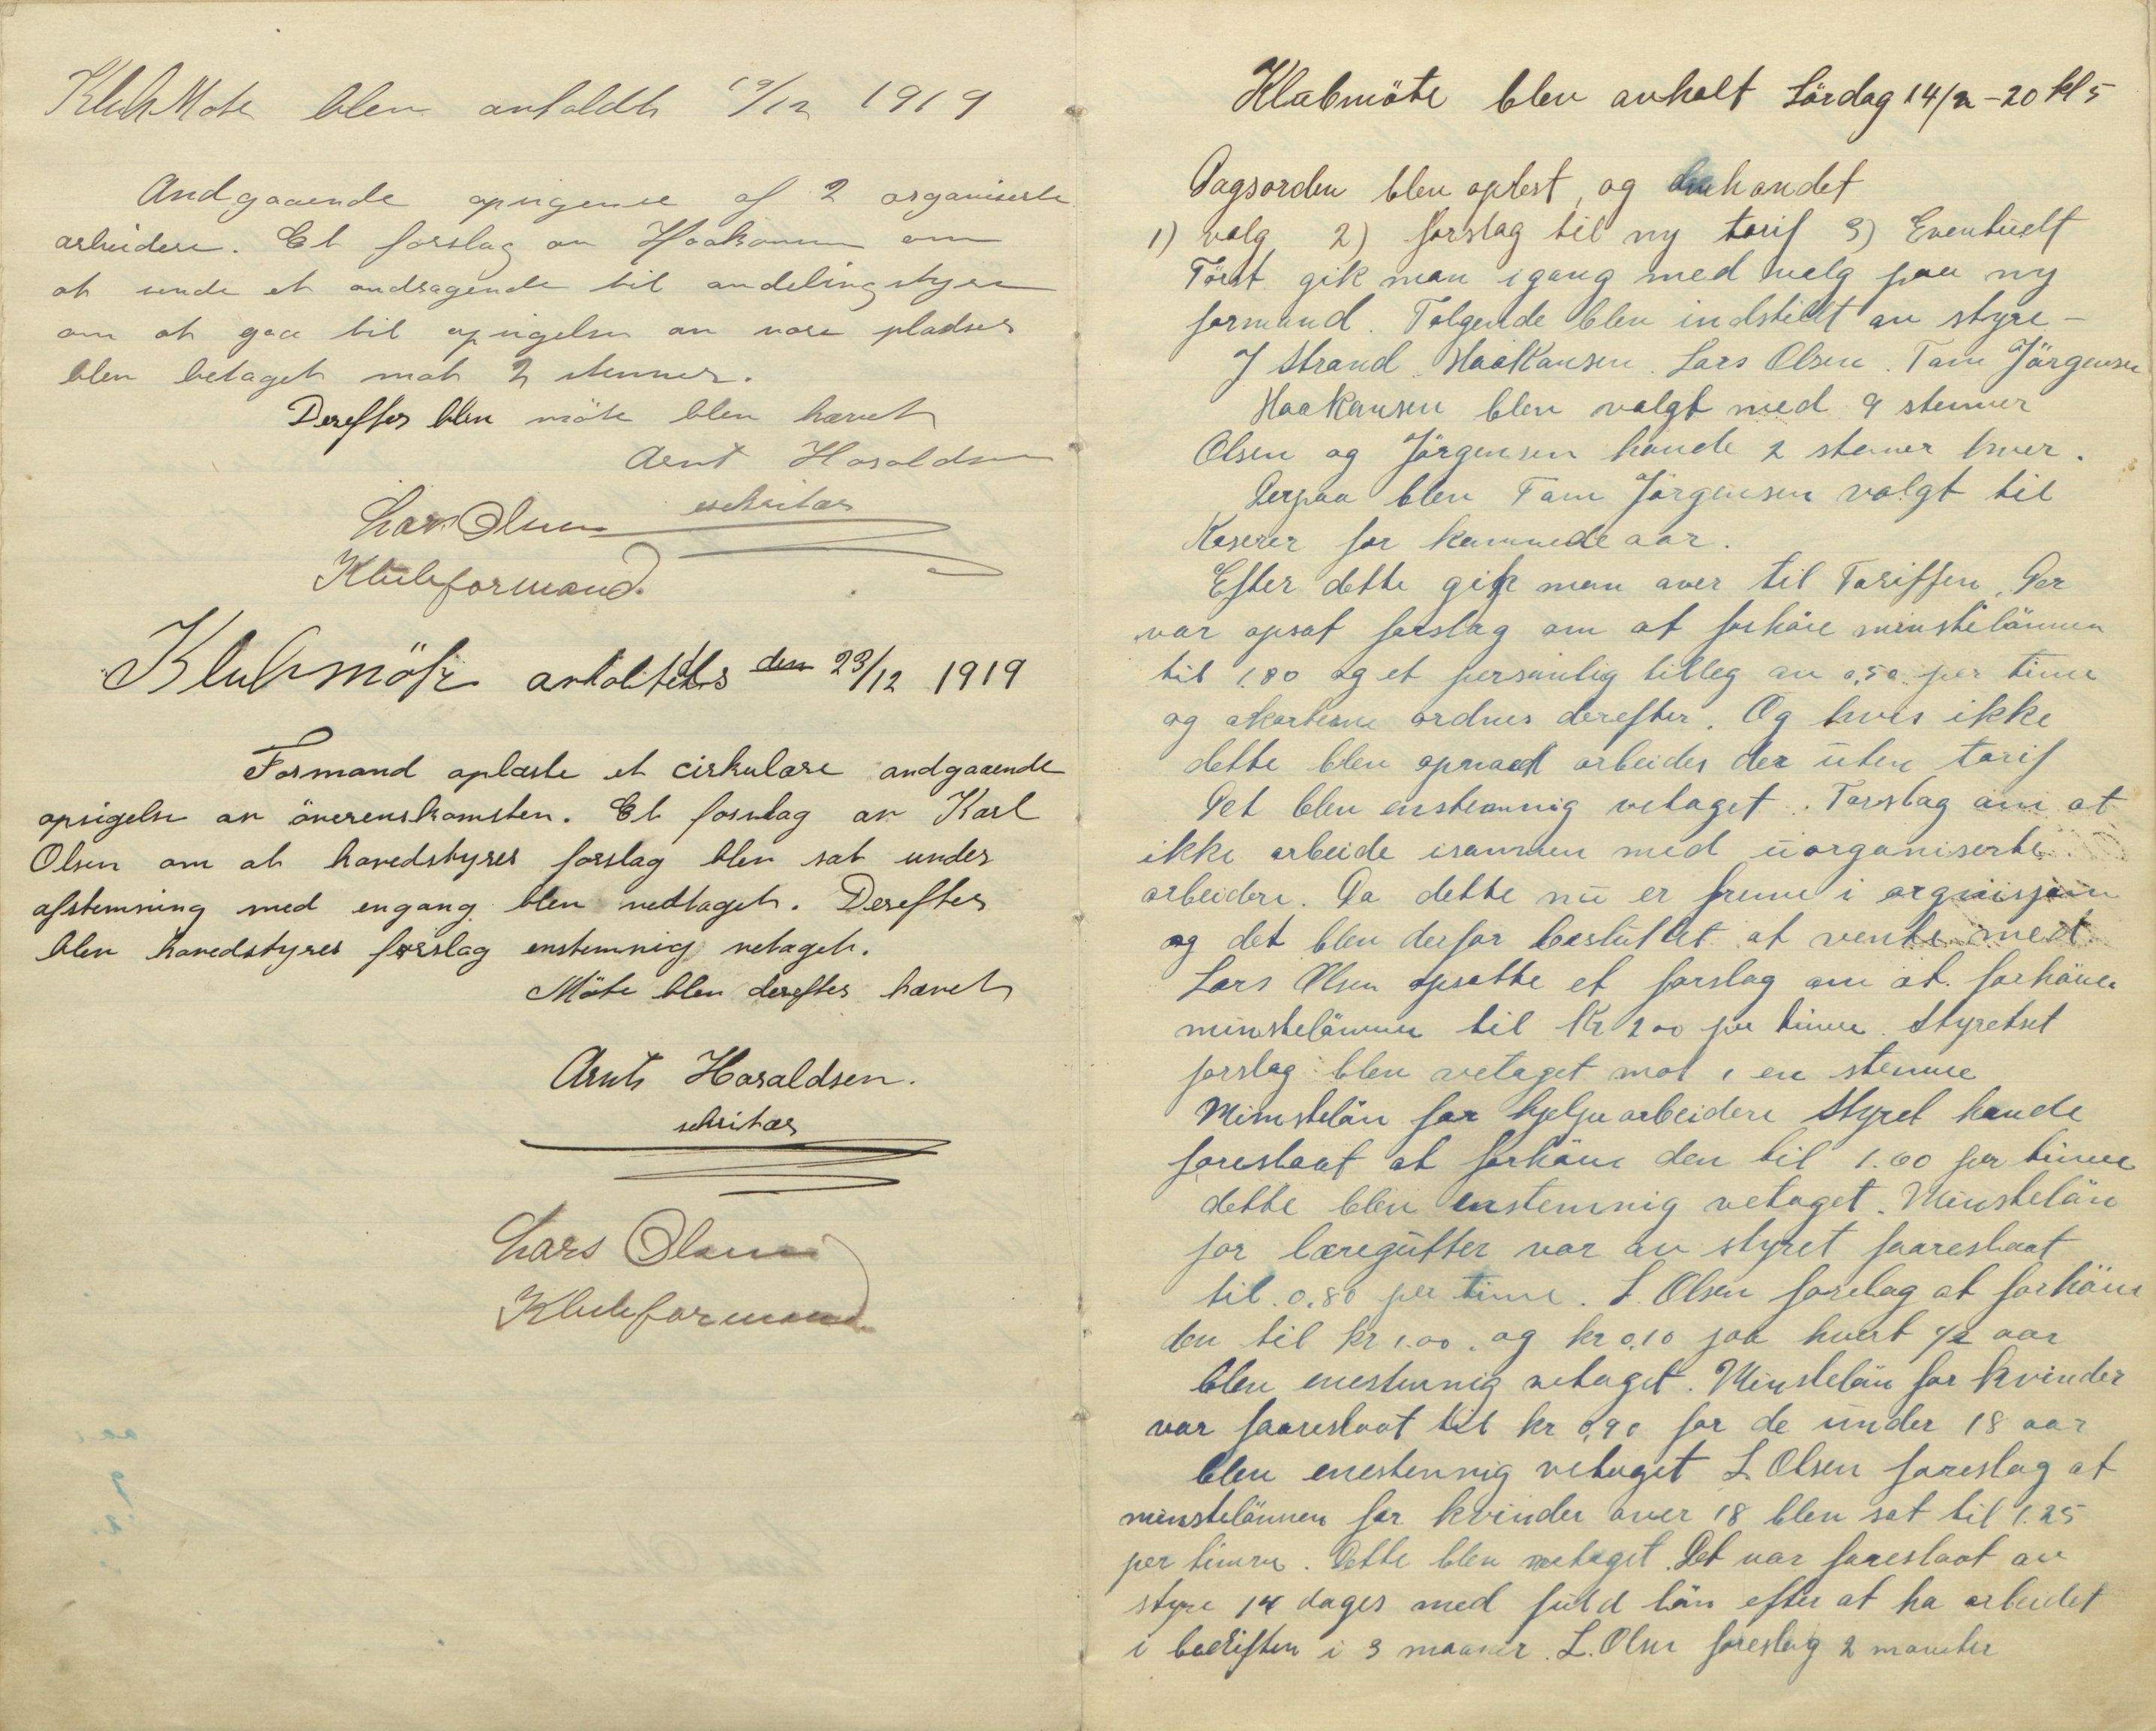 KlubMöte blev anholdt 19/12 1919
Andgaaende opsigense af 2 organiserte
arbeidere. Et forslag av Haakonsen om
at sende et andragende til avdelingstyre
om at gaa til opsigelse av vore pladser
blev betaget mot 2 stemmer.
Derefter blev möte blev hævet
Arnt Haraldsen
sekritær
Lars Olsen
Klubformand.
Klubmöte avholdtes den 23/12 1919
Formand oplæste et cirkulære andgaaende
opsigelse av överenskomsten. Et forslag av Karl
Olsen om at hovedstyres forslag blev sat under
afstemning med engang blev vedtaget. Derefter
blev hovedstyres forslag enstemnig vetaget.
Möte blev derefter hævet
Arnt Haraldsen.
sekritær
Lars Olsen
Klubformand
Klubmöte blev avholt Lördag 14/2-20 kl 5
Dagsorden blev oplest, og
1) valg 2) forslag til ny tarif 3) Eventuelt
Först gik man igang med valg paa ny
formand. Følgende blev indstillt av styre-
J Strand. Haakansen. Lars Olsen. Tom Jörgensen
Haakansen blev valgt med 9 stemmer
Olsen og Jörgensen havde 2 stemer hver.
Derpaa blev Tom Jörgensen valgt til
Kaserer for kommede aar.
Efter dette gik man over til Tariffen. Der
var opsat forslag om at forhöie minstelönnen
til 1.80 og et personlig tilleg av 0,50 per time
og akorterne ordnes derefter. Og hvis ikke
dette blev opnaad arbeides der uten tarif
Det blev enstemnig vetaget. Forslag om at
ikke arbeide isammen med uorganiserte
arbeidere. Da dette nu er freme i orgnisjoin
og det blev derfor besluttet at vente med
Lars Olsen opsatte et forslag om at forhöie
minstelönnen til Kr 2 00 per time. Styretset
forslag blev vetaget mot 1 en stemme
Minstelön for hjelpearbeidere Styret havde
foreslaat at forhöie den til 1.60 per time
dette blev enstemnig vetaget. Minstelön
for læregutter var av styret fooreslaat
til 0.80 per time. L. Olsen foreslog at forhöie
den til kr 1.00. og kr 0.10 paa hvert 1/2 aar
blev enestemnig vetaget. Minstelön for kvinder
var fooreslaat til kr 0,90 for de under 18 aar
blev enestemnig vetaget L Olsen foreslog at
minstelönnen for kvinder over 18 blev sat til 1.25
per timen. Dette blev vetaget. Det var foreslaat av
styre 14 dages med fuld lön efter at ha arbeidet
i bedriften i 3 maaner. L. Olsen foreslog 2 maneter